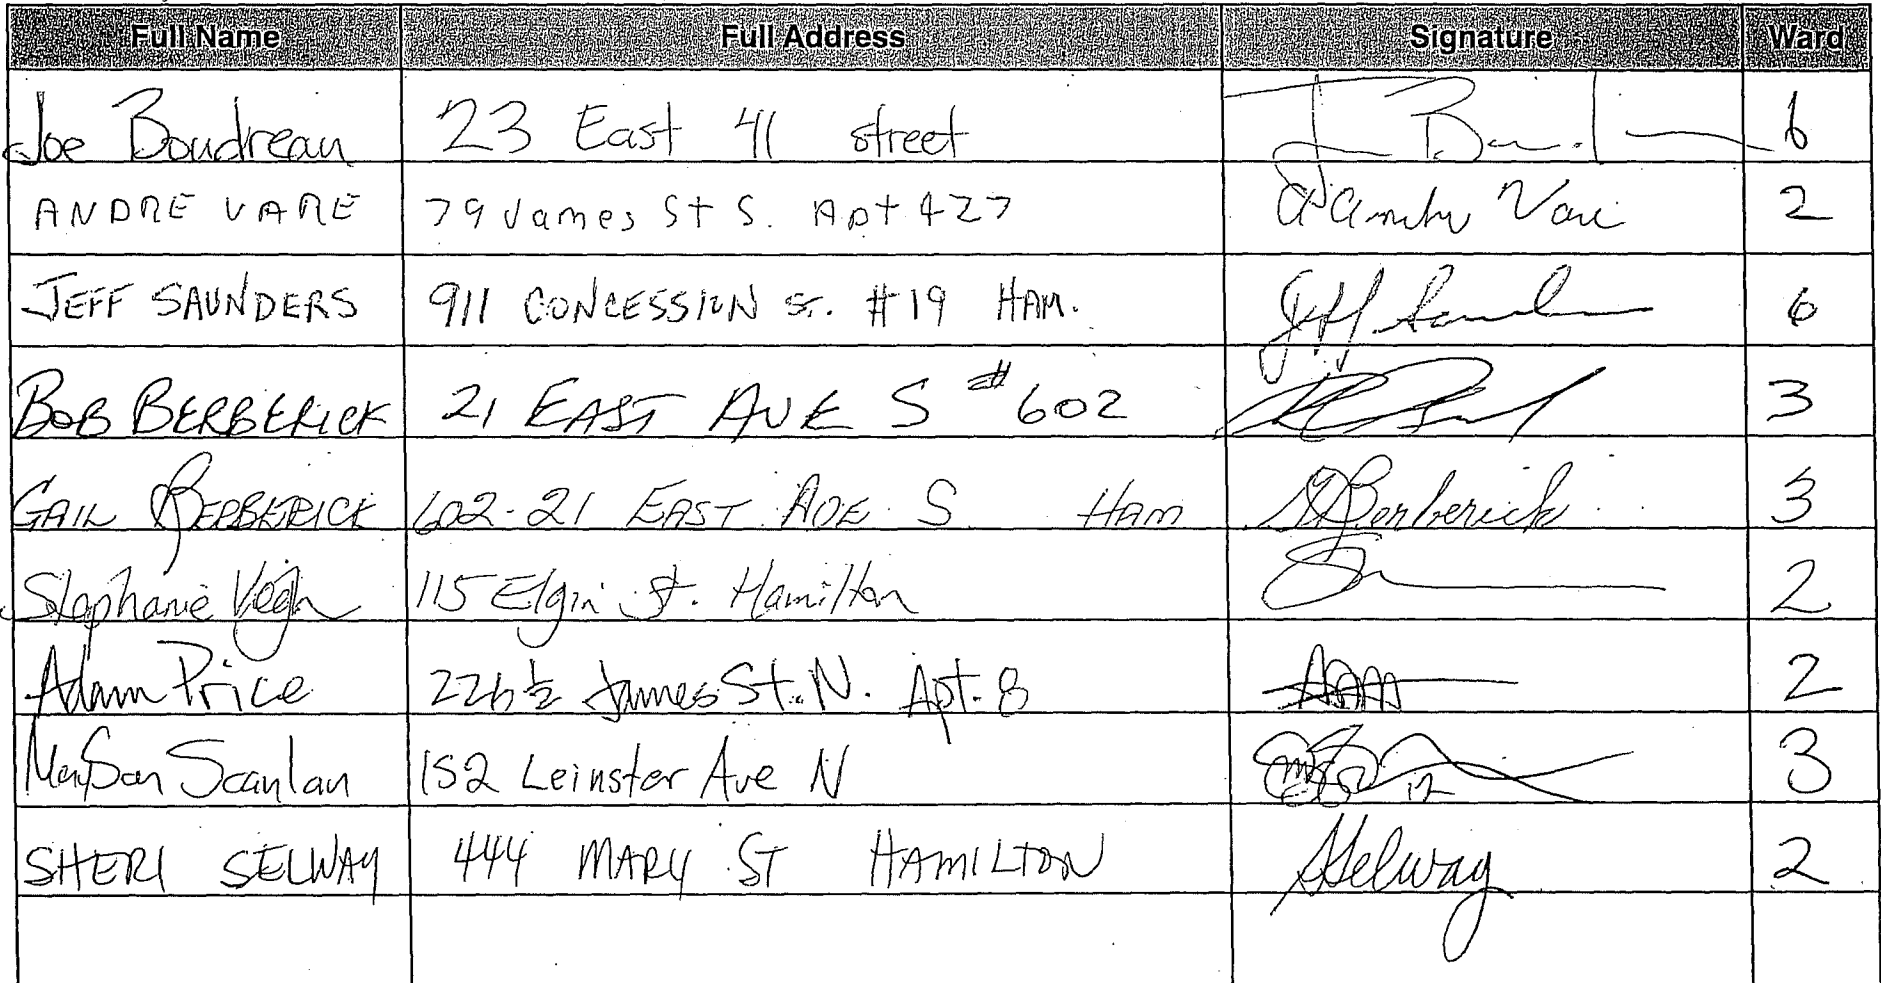 Full Name Full Address Signature Ward
Joe Boudreau 23 East 41 street 6
ANDRE VARE 79 James St S. Apt 427 Vare 2
JEFF SAUNDERS 911 CONCESSION ST. #19 HAM. 6
BOB BERBERICK 21 EAST AVE S #602 3
GAIL BERBERICK 602-21 EAST AVE S HAM G Berberick 3
Stephanie Vegh 115 Elgin St. Hamilton 2
Adam Price 226 1/2 James St. N. Apt. 8 2
Scanlan 152 Leinster Ave N 3
SHERI SELWAY 444 MARY ST HAMILTON SSelway 2